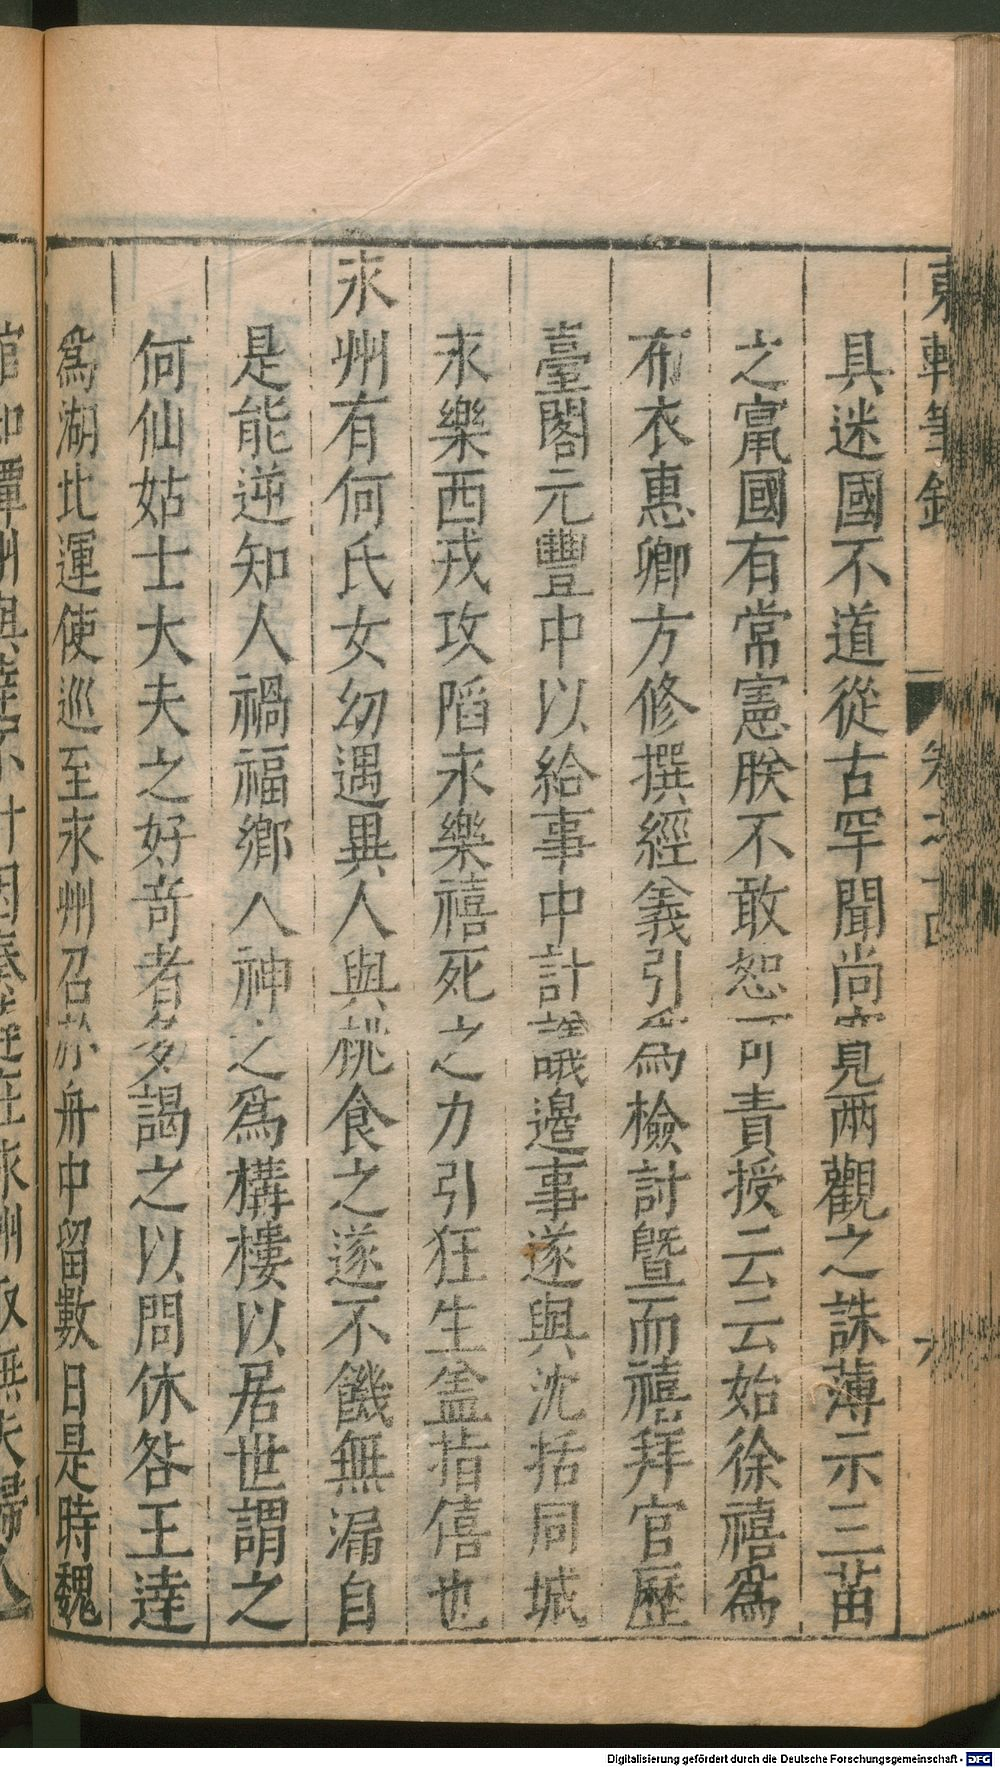 具迷國不道從古罕聞尚寬兩觀之誅薄示三苗
之竄國有常憲朕不敢恕可責授云云始徐禧爲
布衣惠卿方修撰經義引爲檢討暨而禧拜官歷
臺閣元豐中以給事中計議邊事遂與沈括同城
永樂西戎攻陷永樂禧死之力引狂生盖指僖也
永州有何氏女幼遇異人與桃食之遂不饑無漏自
是能逆知人禍福鄉人神之爲構樓以居世謂之
何仙姑士大夫之好竒者多謁之以問休咎王逹
爲湖北運使巡至永州召於舟中留數日是時魏
東軒筆錄 卷之十四 六
Digitalisierung gefördert durch die Deutsche Forschungsgemeinschaft - DFG